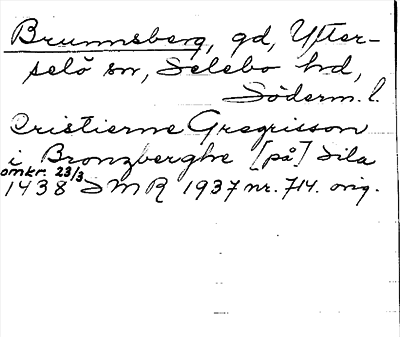 Brunnsberg, gd, Ytter-
selö sn, Selebo hd,
Söderm. l.
Cristierne Gregrisson
i Bronzberghe [på] Sila
omkr. 23/3
1438 SMR 1937 nr. 714. orig.